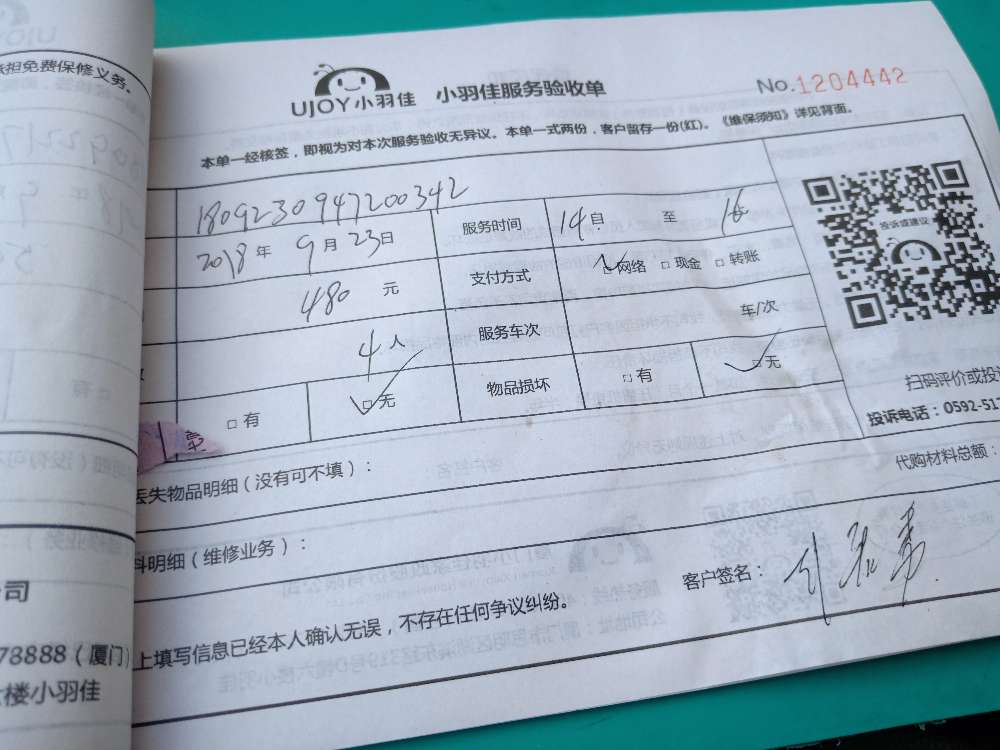 担免费保修义务。
UJOY小羽佳 小羽佳服务验收单
No.1204442
本单一经核签，即视为对本次服务验收无异议。本单一式两份，客户留存一份(红)。《维保须知》详见背面。
180923094720​0342
服务时间 14自 至 16
2018年 9月23日
支付方式 □网络 □现金 □转账
480 元
服务车次 车/次
4人
□有 □无 物品损坏 □有 □无
投诉或建议
扫码评价或投
投诉电话：0592-51
丢失物品明细(没有可不填)：
代购材料总额：
料明细(维修业务)：
客户签名：
上填写信息已经本人确认无误，不存在任何争议纠纷。
司
78888(厦门)
楼小羽佳